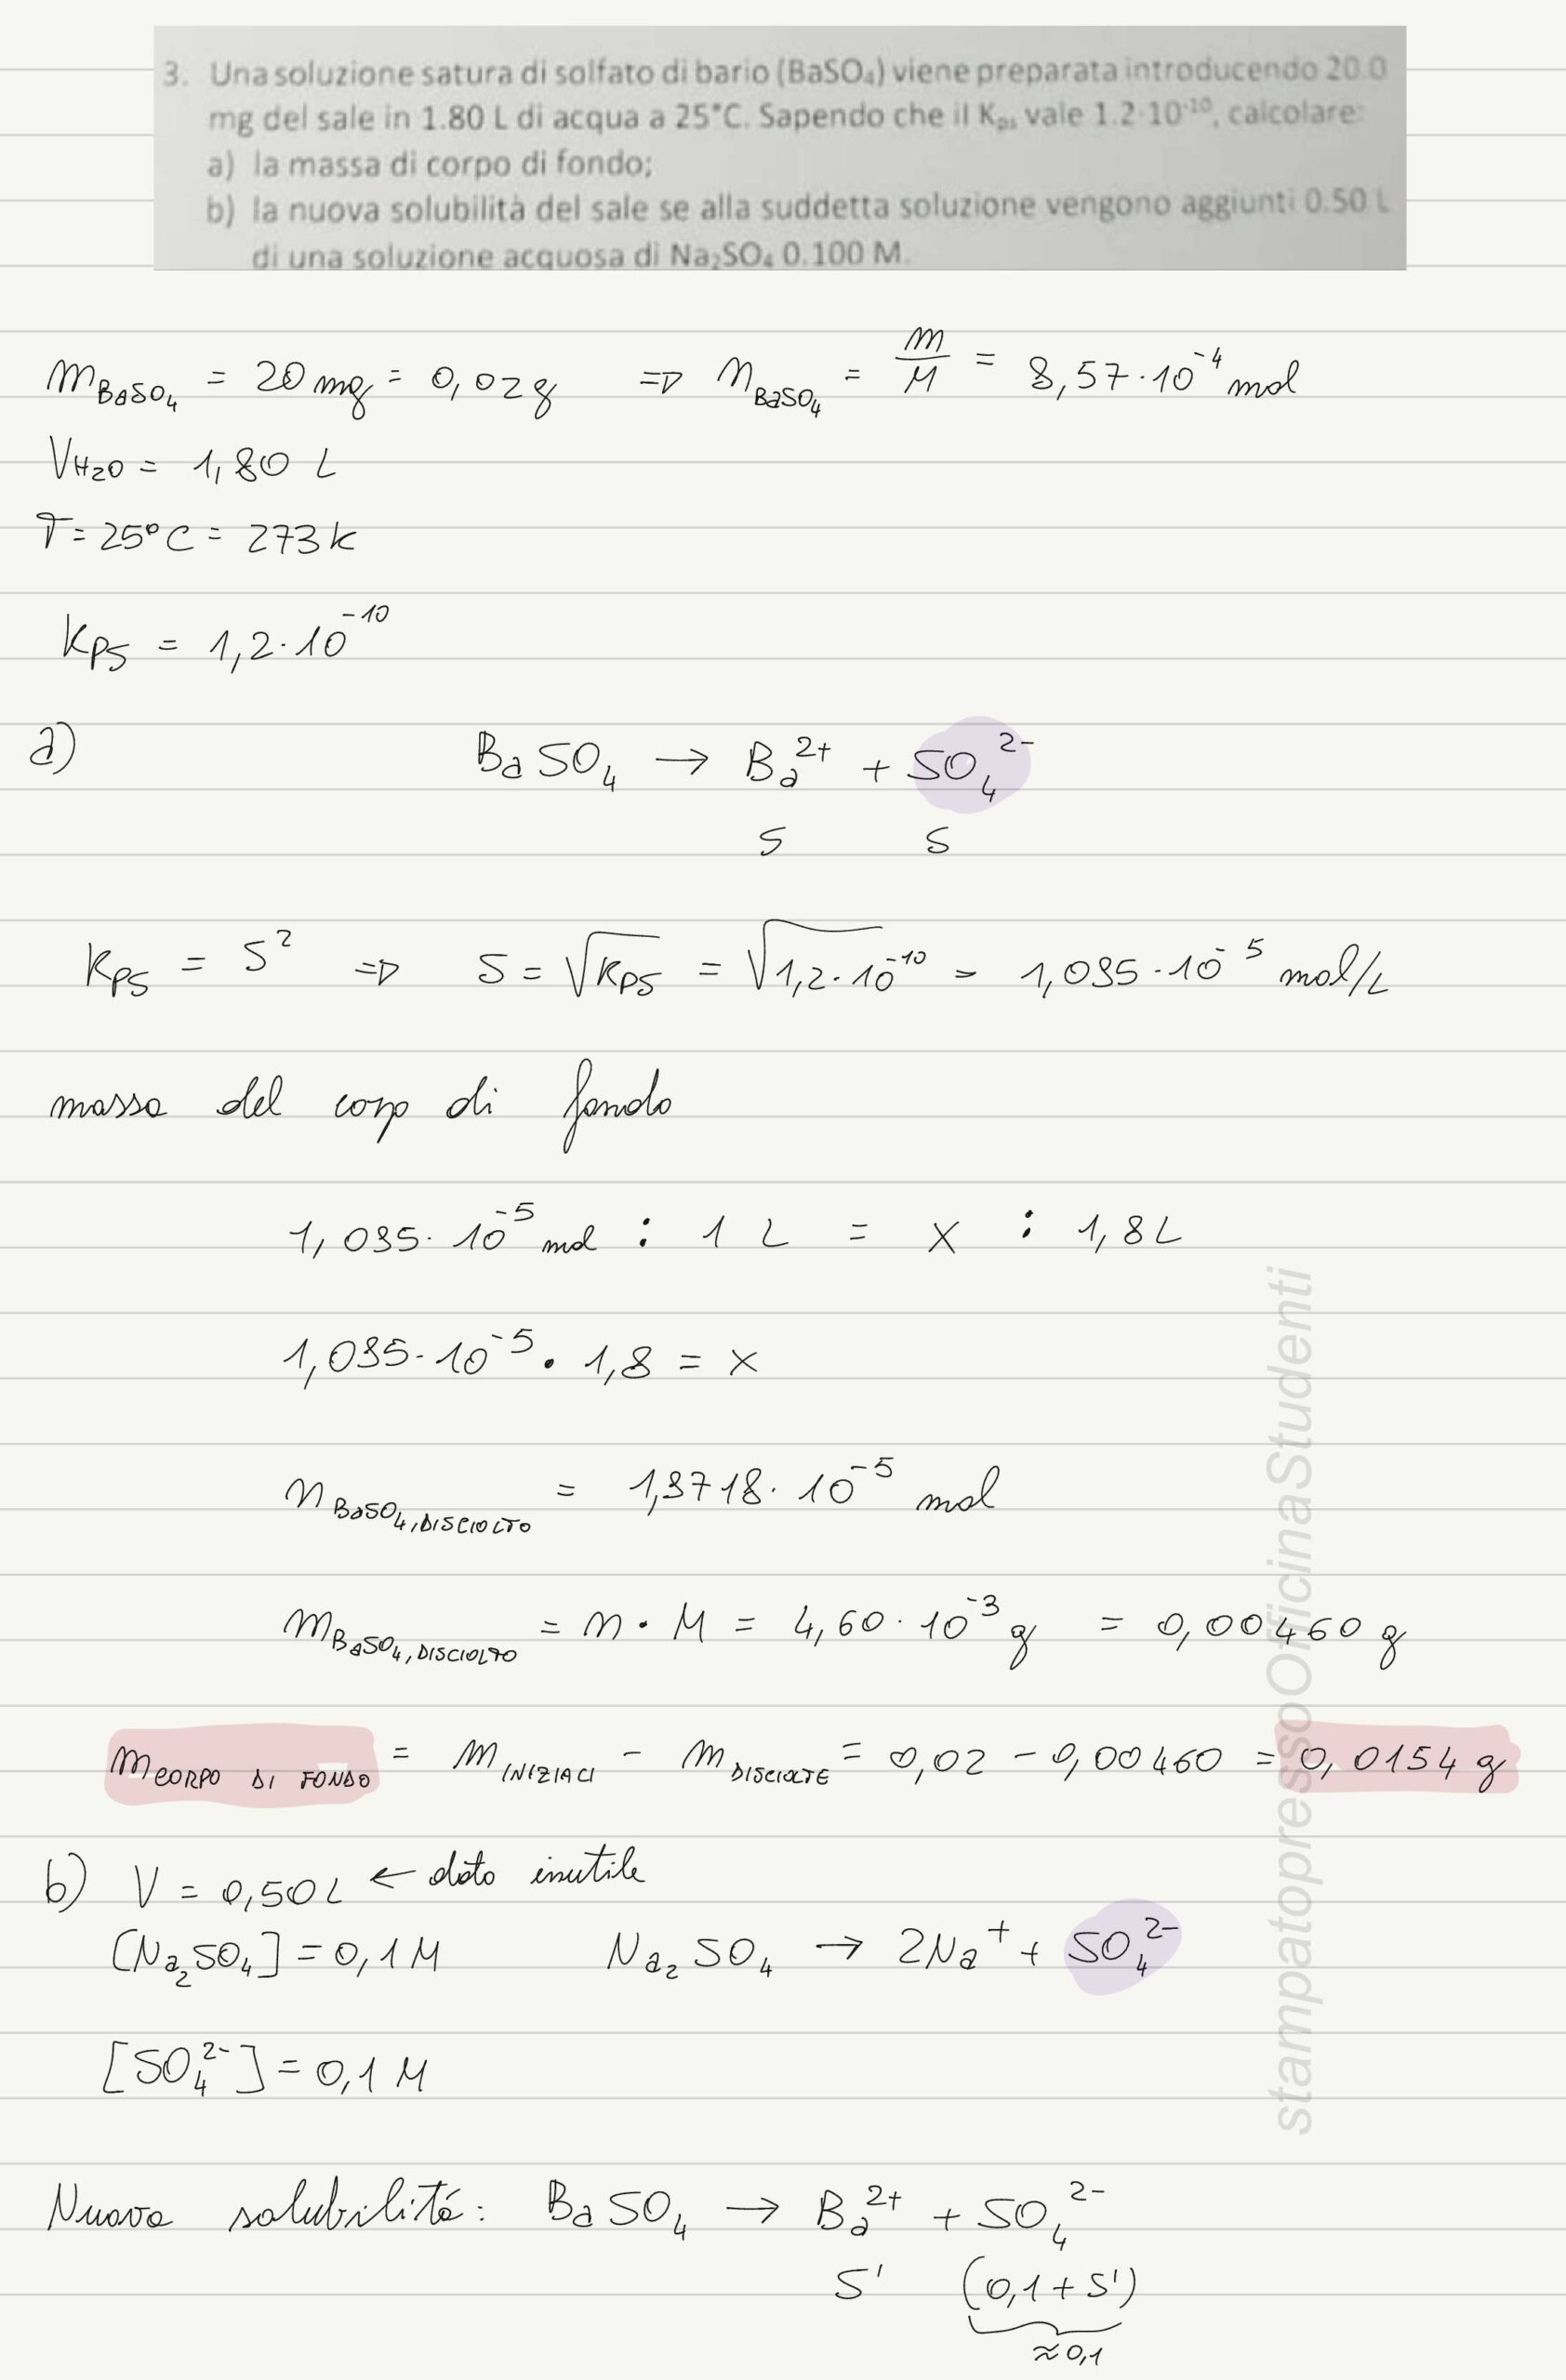 3. Una soluzione satura di solfato di bario (BaSO₄) viene preparata introducendo 20.0
mg del sale in 1.80 L di acqua a 25°C. Sapendo che il Kₚₛ vale 1.2·10⁻¹⁰, calcolare:
a) la massa di corpo di fondo;
b) la nuova solubilità del sale se alla suddetta soluzione vengono aggiunti 0.50 L
di una soluzione acquosa di Na₂SO₄ 0.100 M.
m BaSO₄ = 20 mg = 0,02 g ⇒ n BaSO₄ = m/M = 8,57·10⁻⁴ mol
V H₂O = 1,80 L
T = 25°C = 273 K
KPS = 1,2·10⁻¹⁰
a) BaSO₄ → Ba²⁺ + SO₄²⁻
S S
KPS = S² ⇒ S = √KPS = √1,2·10⁻¹⁰ = 1,095·10⁻⁵ mol/L
massa del corpo di fondo
1,095·10⁻⁵ mol : 1 L = x : 1,8 L
1,095·10⁻⁵ · 1,8 = x
n BaSO₄, DISCIOLTO = 1,9718·10⁻⁵ mol
m BaSO₄, DISCIOLTO = n · M = 4,60·10⁻³ g = 0,00460 g
m CORPO DI FONDO = m INIZIALI - m DISCIOLTE = 0,02 - 0,00460 = 0,0154 g
b) V = 0,50 L ← dato inutile
[Na₂SO₄] = 0,1 M Na₂SO₄ → 2Na⁺ + SO₄²⁻
[SO₄²⁻] = 0,1 M
Nuova solubilità: BaSO₄ → Ba²⁺ + SO₄²⁻
S' (0,1 + S')
≈ 0,1
stampatopressoOfficinaStudenti